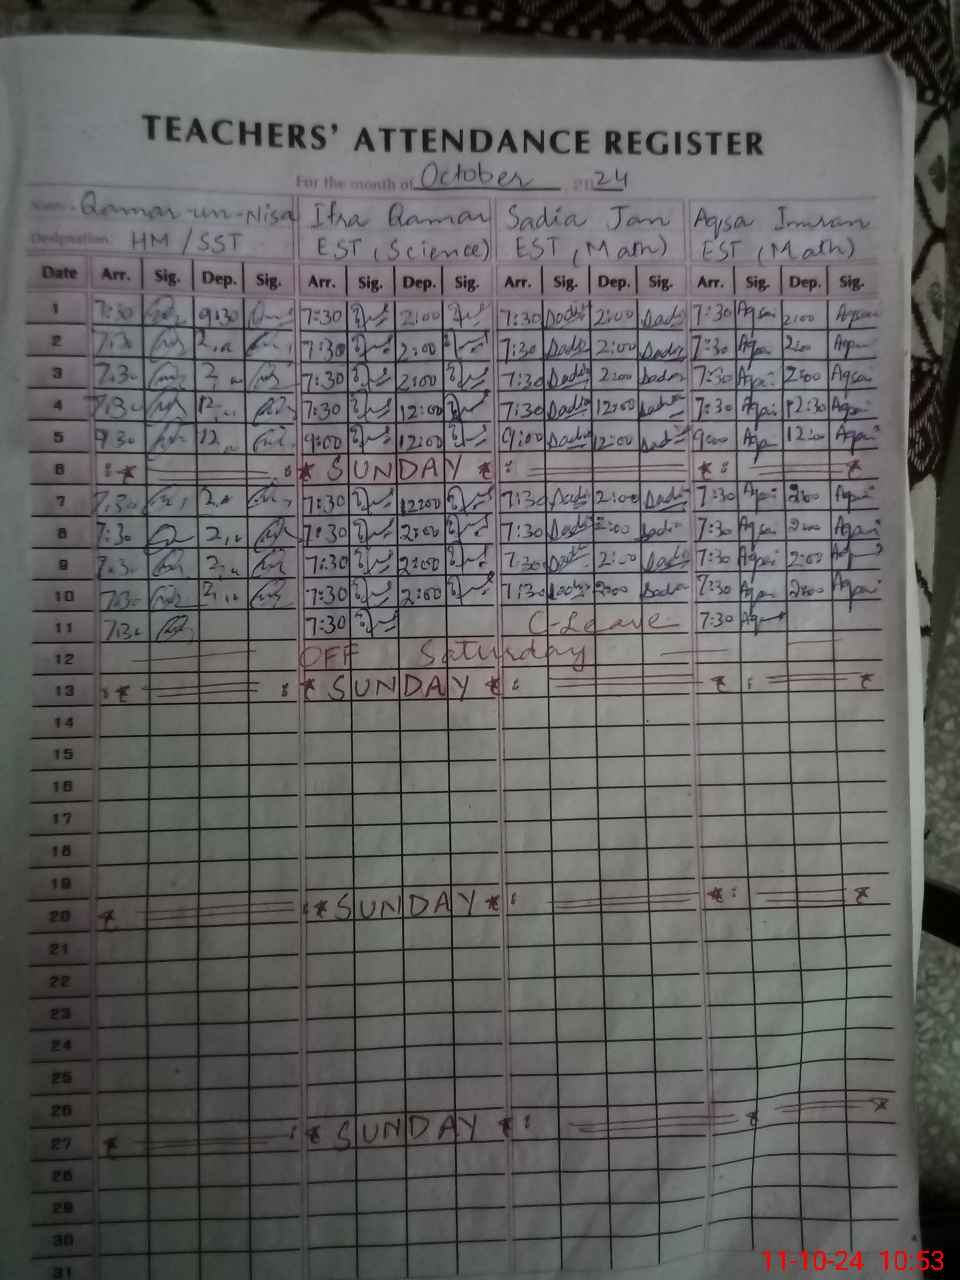 TEACHERS' ATTENDANCE REGISTER
For the month of October 2024
Name Qamar-un-Nisa Ifra Qamar Sadia Jan Aqsa Imran
Designation: HM / SST EST (Science) EST (Math) EST (Math)
Date Arr. Sig. Dep. Sig. Arr. Sig. Dep. Sig. Arr. Sig. Dep. Sig. Arr. Sig. Dep. Sig.
1 7:30 9:30 7:30 2:00 7:30 Sadia 2:00 Sadia 7:30 Aqsa 2:00 Aqsa
2 7:30 7:30 2:00 7:30 Sadia 2:00 Sadia 7:30 Aqsa 2:00 Aqsa
3 7:30 7:30 2:00 7:30 Sadia 2:00 Sadia 7:30 Aqsa 2:00 Aqsa
4 7:30 12 7:30 12:00 7:30 Sadia 12:00 Sadia 7:30 Aqsa 12:30 Aqsa
5 9:30 12 9:00 12:00 9:00 Sadia 12:00 Sadia 9:00 Aqsa 12:00 Aqsa
6 SUNDAY
7 7:30 7:30 12:00 7:30 Sadia 2:00 Sadia 7:30 Aqsa 2:00 Aqsa
8 7:30 7:30 2:00 7:30 Sadia 2:00 Sadia 7:30 Aqsa 2:00 Aqsa
9 7:30 7:30 2:00 7:30 Sadia 2:00 Sadia 7:30 Aqsa 2:00 Aqsa
10 7:30 7:30 2:00 7:30 Sadia 2:00 Sadia 7:30 Aqsa 2:00 Aqsa
11 7:30 7:30 C-Leave 7:30 Aqsa
12 OFF Saturday
13 SUNDAY
14
15
16
17
18
19
20 SUNDAY
21
22
23
24
25
26
27 SUNDAY
28
29
30
31
11-10-24 10:53